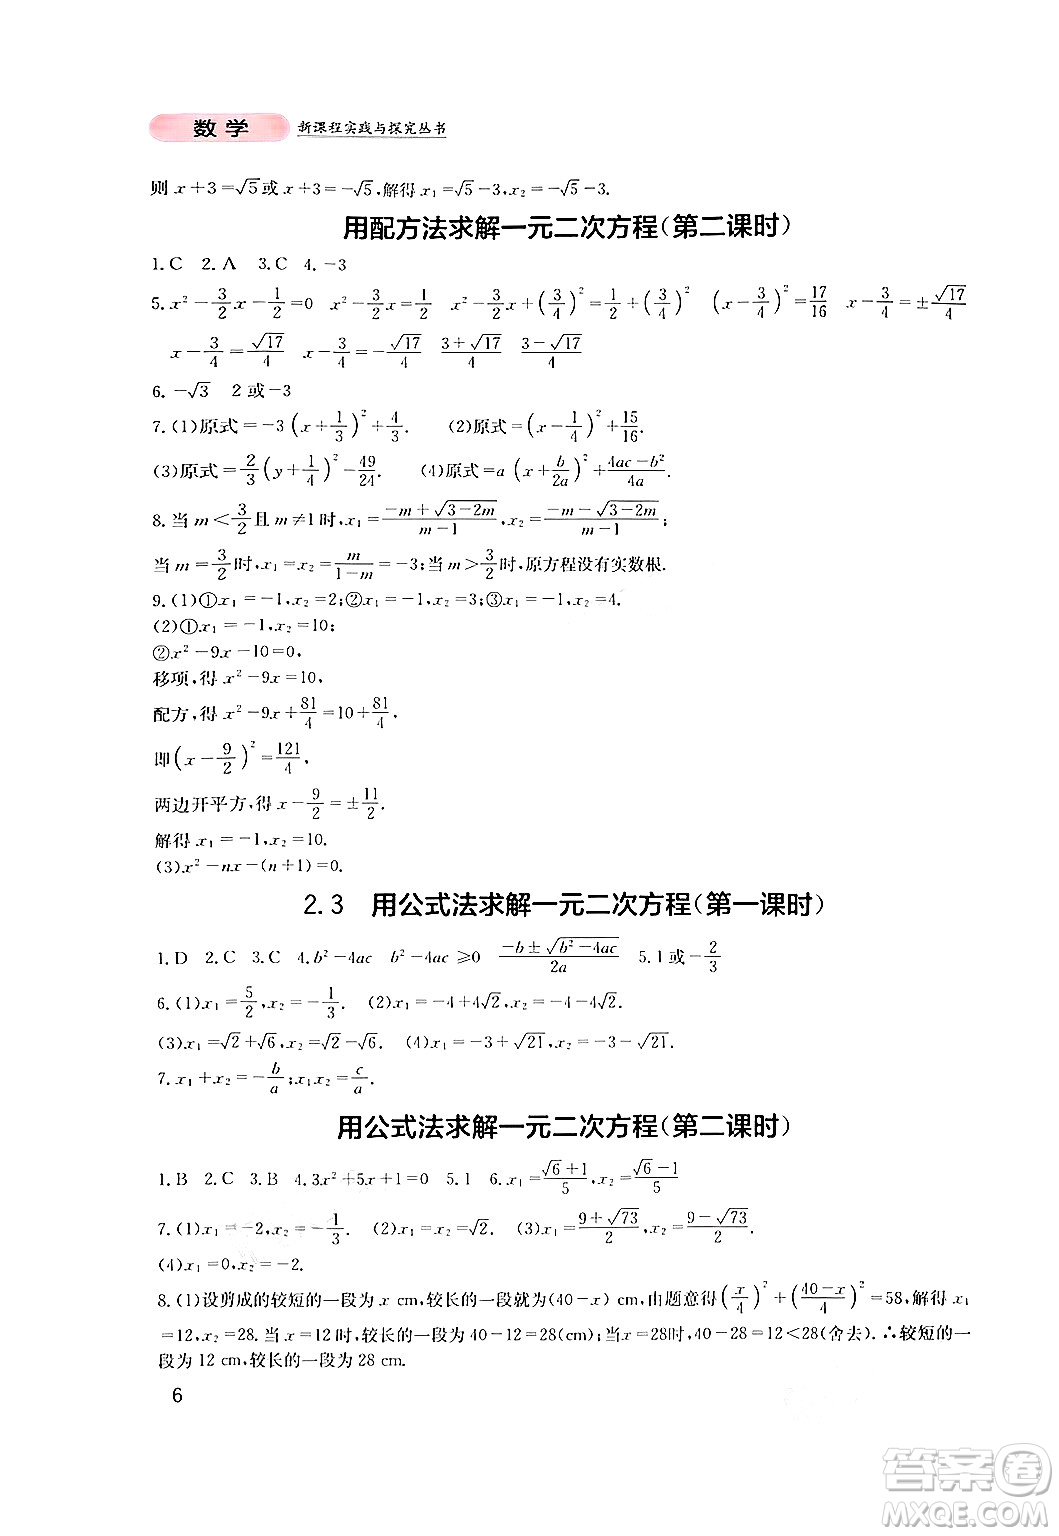 数学 新课程实践与探究丛书
则 x+3=√5或 x+3=-√5,解得 x₁=√5-3,x₂=-√5-3.
用配方法求解一元二次方程(第二课时)
1.C 2.A 3.C 4.-3
5.x²-3/2x-1/2=0 x²-3/2x=1/2 x²-3/2x+(3/4)²=1/2+(3/4)² (x-3/4)²=17/16 x-3/4=±√17/4
x-3/4=√17/4 x-3/4=-√17/4 (3+√17)/4 (3-√17)/4
6.-√3 2 或-3
7.(1)原式=-3(x+1/3)²+4/3. (2)原式=(x-1/4)²+15/16.
(3)原式=2/3(y+1/4)²-49/24. (4)原式=a(x+b/2a)²+(4ac-b²)/4a.
8.当 m<3/2且 m≠1时,x₁=(-m+√(3-2m))/(m-1),x₂=(-m-√(3-2m))/(m-1);
当 m=3/2时,x₁=x₂=m/(1-m)=-3;当 m>3/2时,原方程没有实数根.
9.(1)①x₁=-1,x₂=2;②x₁=-1,x₂=3;③x₁=-1,x₂=4.
(2)①x₁=-1,x₂=10;
②x²-9x-10=0,
移项,得 x²-9x=10,
配方,得 x²-9x+81/4=10+81/4,
即(x-9/2)²=121/4,
两边开平方,得 x-9/2=±11/2.
解得 x₁=-1,x₂=10.
(3)x²-nx-(n+1)=0.
2.3 用公式法求解一元二次方程(第一课时)
1.D 2.C 3.C 4.b²-4ac b²-4ac≥0 (-b±√(b²-4ac))/2a 5.1 或-2/3
6.(1)x₁=5/2,x₂=-1/3. (2)x₁=-4+4√2,x₂=-4-4√2.
(3)x₁=√2+√6,x₂=√2-√6. (4)x₁=-3+√21,x₂=-3-√21.
7.x₁+x₂=-b/a;x₁x₂=c/a.
用公式法求解一元二次方程(第二课时)
1.B 2.C 3.B 4.3x²+5x+1=0 5.1 6.x₁=(√6+1)/5,x₂=(√6-1)/5
7.(1)x₁=-2,x₂=-1/3. (2)x₁=x₂=√2. (3)x₁=(9+√73)/2,x₂=(9-√73)/2.
(4)x₁=0,x₂=-2.
8.(1)设剪成的较短的一段为 x cm,较长的一段就为(40-x) cm,由题意得(x/4)²+((40-x)/4)²=58,解得 x₁
=12,x₂=28.当 x=12时,较长的一段为 40-12=28(cm);当x=28时,40-28=12<28(舍去).∴较短的一
段为 12 cm,较长的一段为 28 cm.
6
答案圈
MXQE.COM